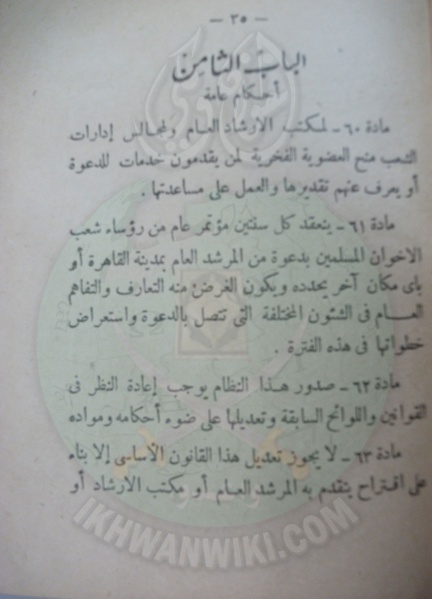 — ٣٥ —
الباب الثامن
أحكام عامة
مادة ٦٠ - لمكتب الارشاد العام ولمجالس إدارات
الشعب منح العضوية الفخرية لمن يقدمون خدمات للدعوة
أو يعرف عنهم تقديرها والعمل على مساعدتها .
مادة ٦١ - ينعقد كل سنتين مؤتمر عام من رؤساء شعب
الاخوان المسلمين بدعوة من المرشد العام بمدينة القاهرة أو
بأى مكان آخر يحدده ويكون الغرض منه التعارف والتفاهم
العام فى الشئون المختلفة التى تتصل بالدعوة واستعراض
خطواتها فى هذه الفترة .
مادة ٦٢ - صدور هذا النظام يوجب إعادة النظر فى
القوانين واللوائح السابقة وتعديلها على ضوء أحكامه ومواده
مادة ٦٣ - لا يجوز تعديل هذا القانون الأساسى إلا بناء
على اقتراح يتقدم به المرشد العام أو مكتب الارشاد أو
IKHWANWIKI.COM